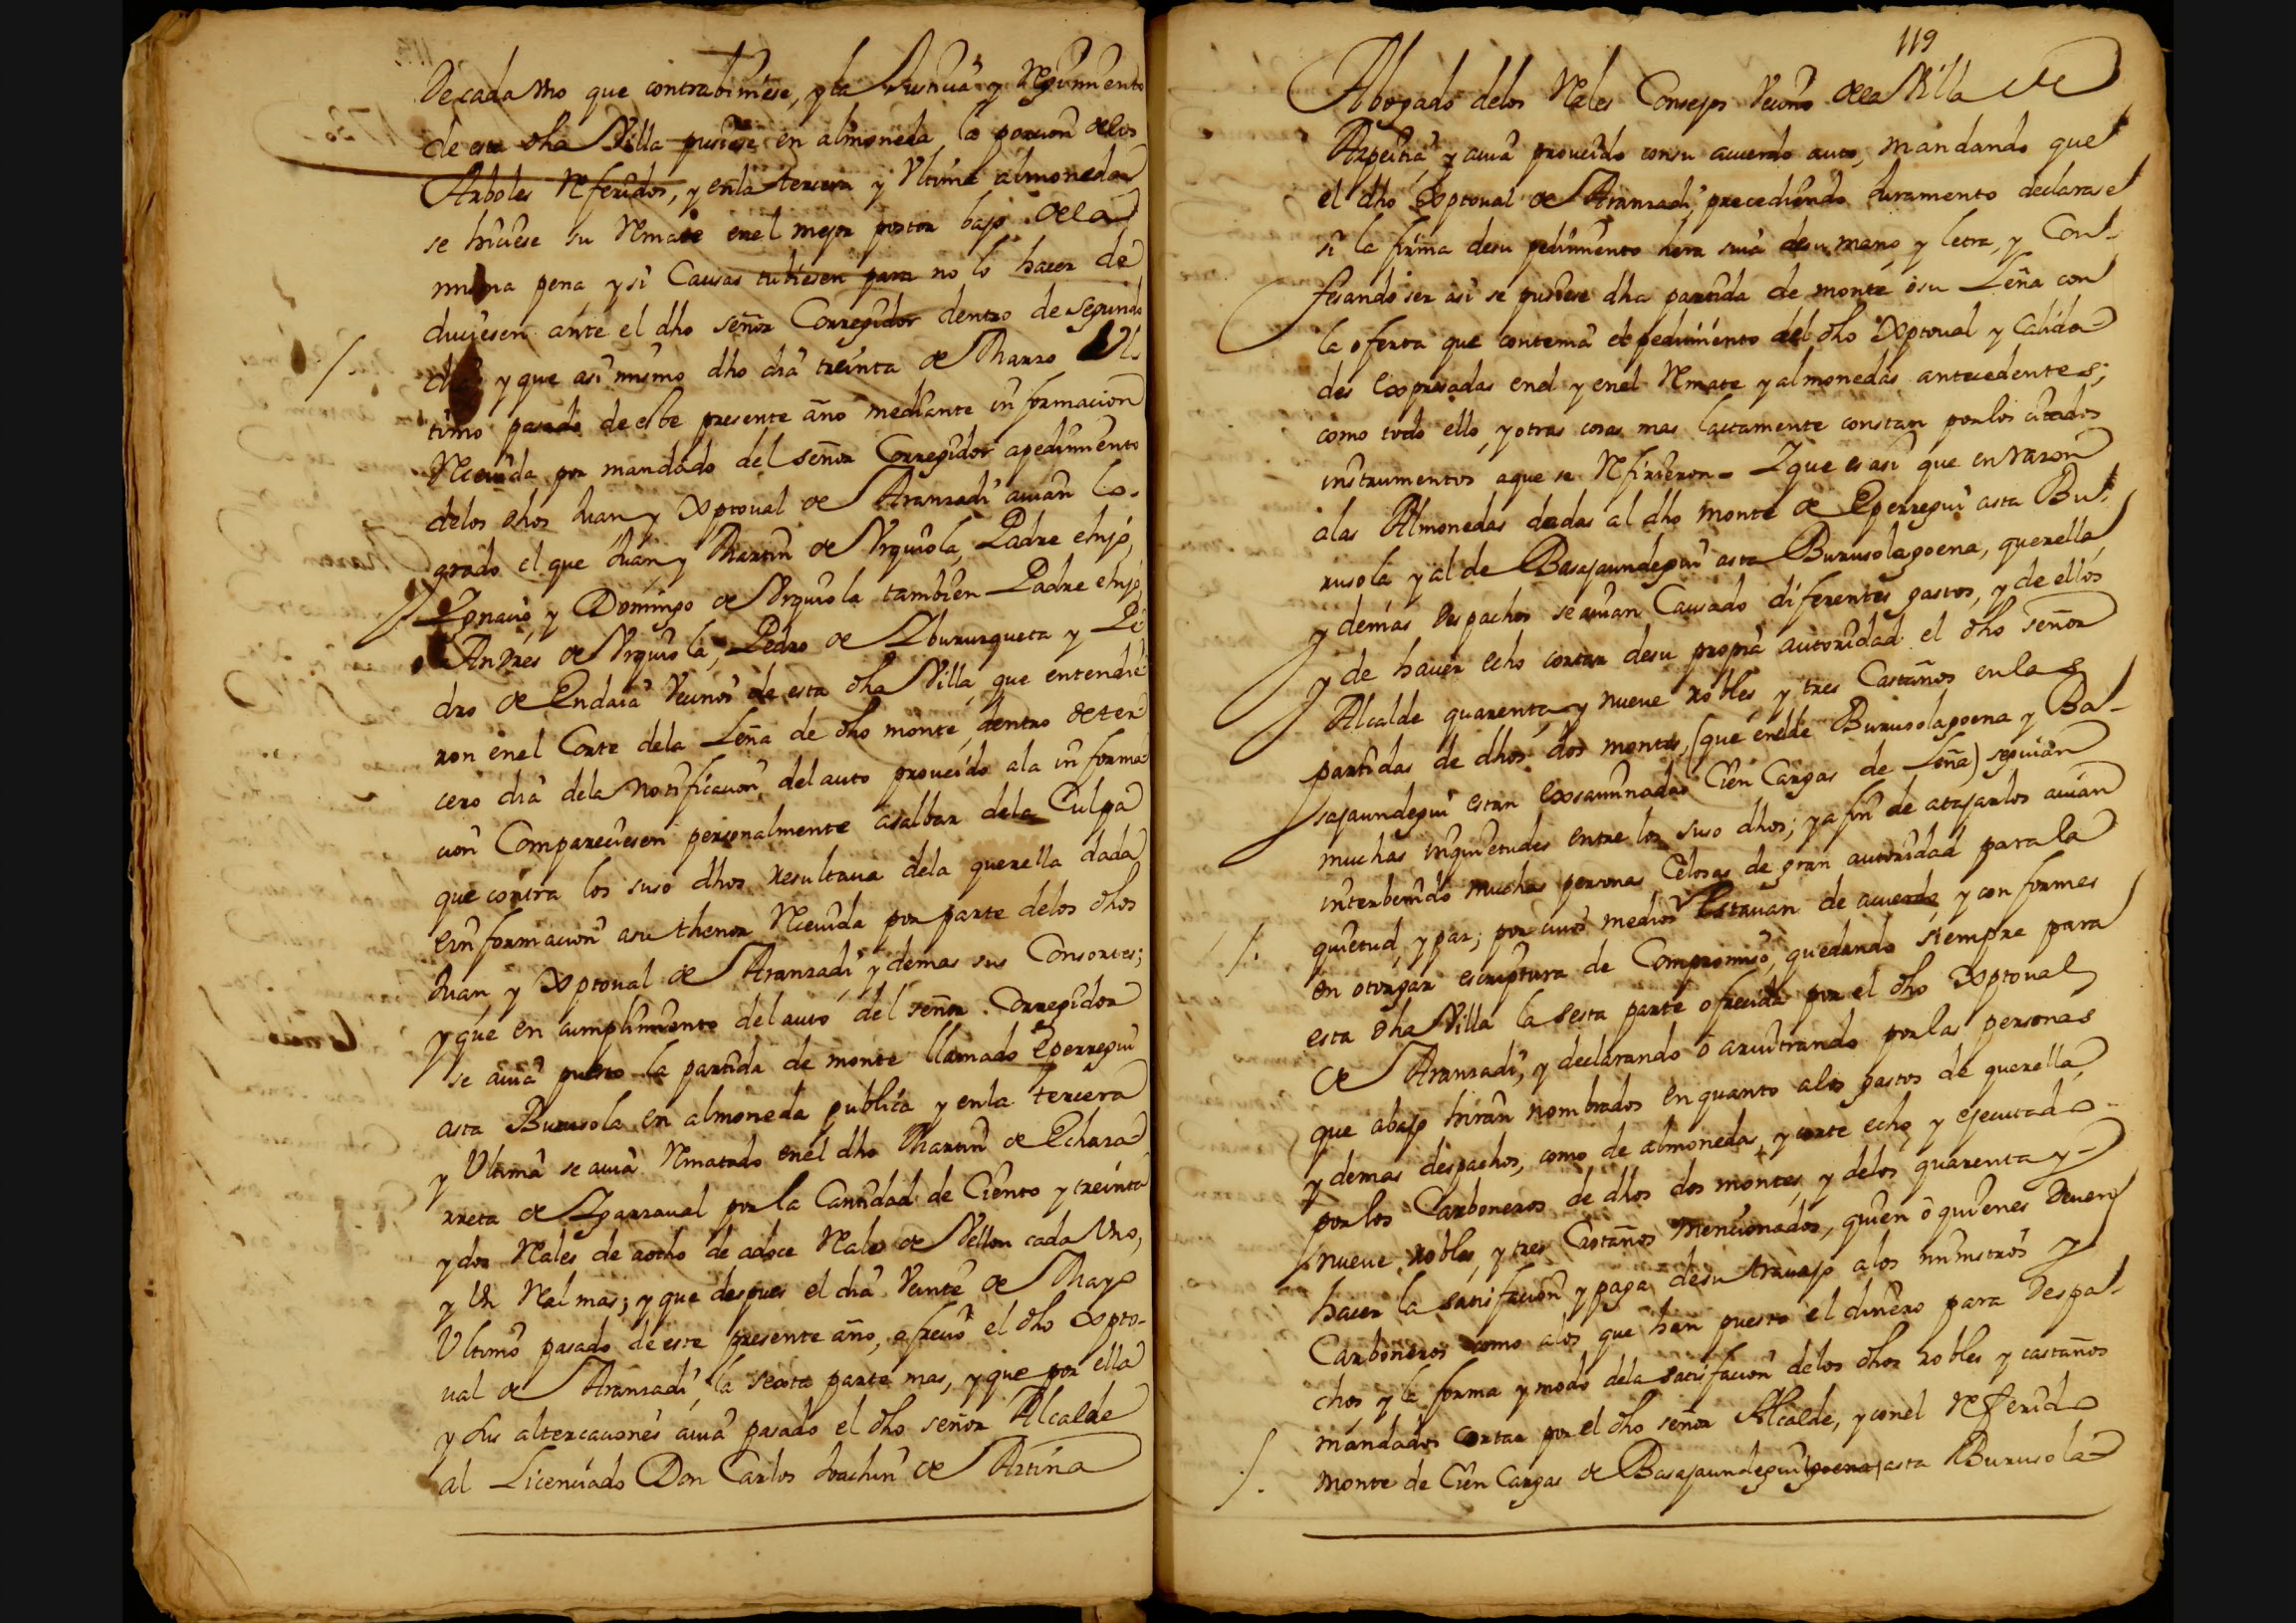 De cada vno que contrabiniese, y la Justicia y Regimiento
de esta dha Villa pusiese en almoneda la porcion de los
Arboles Referidos, y en la tercera y Vltima almoneda
se hiciese su Rmate en el mejor postor bajo de la
misma pena, y si Causas tubiesen para no lo hacer de
dujesen ante el dho señor Corregidor dentro de segundo
dia y que asi mismo dho dia treinta de Marzo Vl-
timo pasado de este presente año mediante informacion
Receuida por mandado del señor Corregidor a pedimiento
de los dhos Juan y Xptoual de Aranzadi auian lo-
grado el que Juan y Martin de Vrquiola, Padre e hijo,
Ignacio y Domingo de Vrquiola tambien Padre e hijo,
Andres de Vrquiola, Pedro de Yburusqueta y Pe
dro de Endaia Vecinos de esta dha Villa, que entendie
ron en el Corte de la Leña de dho monte, dentro de ter
cero dia de la Notificacion del auto proueido a la informa
cion Compareciesen personalmente a salbar de la Culpa
que contra los suso dhos resultaua de la querella dada
e informacion a su thenor Receuida por parte de los dhos
Juan y Xptoual de Aranzadi y demas sus Consortes;
y que en cumplimiento del auto del señor Corregidor
se auia puesto la partida de monte llamado Eperregui
asta Burusola en almoneda publica y en la tercera
y Vltima se auia Rmatado en el dho Martin de Echaza
rreta de Yzarraual por la Cantidad de Ciento y treinta
y dos Rales de a ocho de a doce Rales de Vellon cada Vno,
y Vn Ral mas; y que despues el dia Veinte de Mayo
Vltimo pasado de este presente año, ofrecio el dho Xpto-
ual de Aranzadi, la sexta parte mas, y que por ella
y sus altercaciones auia pasado el dho señor Alcalde
al Licenciado Don Carlos Joachin de Artina
119
Abogado de los Rales Consejos Vecino de la Villa de
Azpeitia, y auia proueido con su acuerdo auto, mandando que
el dho Xptoual de Aranzadi precediendo Juramento declarase
si la firma de su pedimiento hera suia de su mano y letra, y Con-
fesando ser asi se pusiese dha partida de monte o su Leña con
la oferta que contenia el pedimiento del dho Xptoual y Calida-
des Expresadas en el y en el Rmate y almonedas antecedentes;
como todo ello, y otras cosas mas lactamente constan por los citados
instrumentos a que se Refirieron = Y que es asi que en razon
a las Almonedas dadas al dho monte de Eperregui asta Bu-
rusola y al de Basajaundegui asta Burusolagoena, querella
y demás despachos se auian Causado diferentes gastos, y de ellos
y de hauer echo cortar de su propia autoridad el dho señor
Alcalde quarenta y nueue robles y tres Castaños en las
partidas de dhos dos montes, (que en el de Burusolagoena y Ba-
sajaundegui estan Exsaminadas Cien Cargas de Leña) seguian
muchas inquietudes entre los suso dhos; y a fin de atajarlos auian
interbenido muchas personas Celosas de gran autoridad para la
quietud, y paz; por cuios medios Estauan de acuerdo y conformes
en otorgar escriptura de Compromiso, quedando siempre para
esta dha Villa la sesta parte ofrecida por el dho Xptoual
de Aranzadi, y declarando o aruitrando por las personas
que abajo hiran nombrados en quanto a los gastos de querella
y demas despachos, como de almonedas, y corte echo y ejecutado
por los Carboneros de dhos dos montes, y de los quarenta y
nueue robles, y tres Castaños mencionados, quien o quienes deuen
hacer la satisfacion y paga de su trauajo a los ministros y
Carboneros como a los que han puesto el dinero para Despa-
chos y la forma y modo de la satisfacion de los dhos robles y castaños
mandados Cortar por el dho señor Alcalde, y con el Referido
monte de Cien Cargas de Basajaundegui asta Burusola